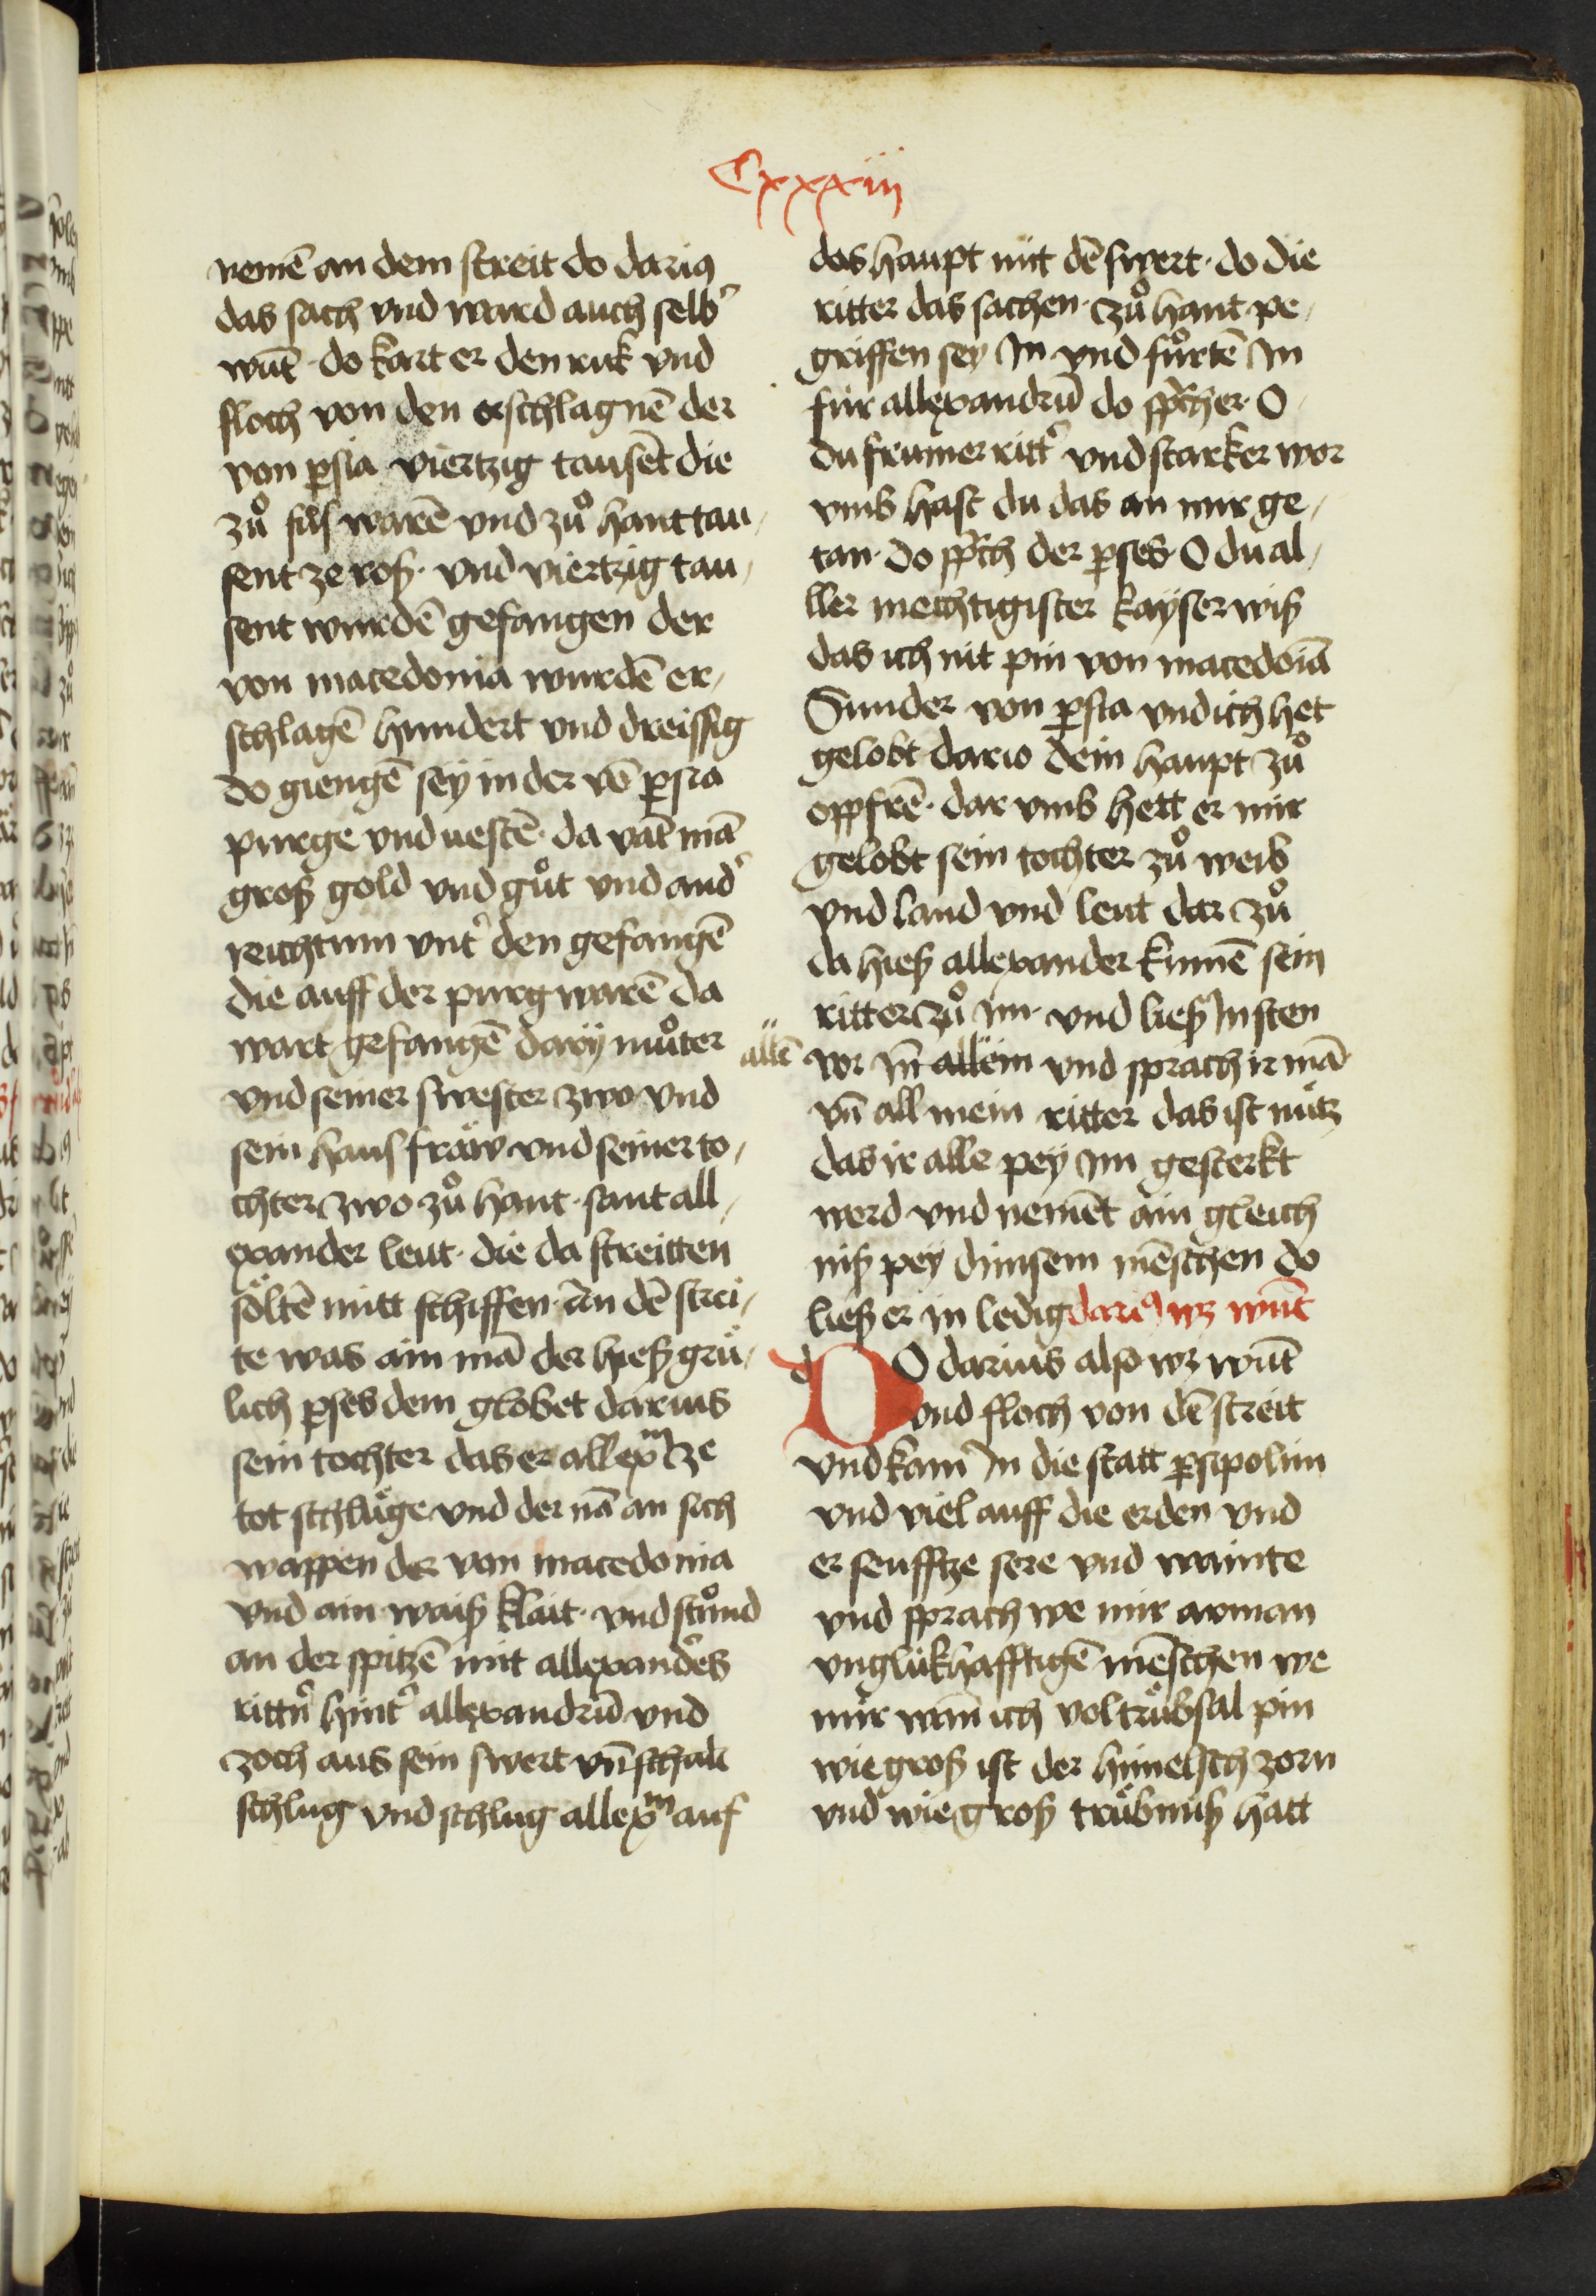 Cxxxiii
nemē an dem streit do dariꝯ
das sach vnd ward auch selbʼ
wūt · do kart er den ruk vnd
floch von den erschlagnē der
von ꝑsia viertzig tausēt die
zuͦ fus warē vnd zuͦ hant tau⸗
sent ze roß · vnd viertzig tau⸗
sent wurdē gefangen der
von macedonia wurdē er⸗
schlagē hundert vnd dreissig
do giengē sey in der vō ꝑsia
purge vnd uestē · da vāt mā
groß gold vnd guͦt vnd andʼ
reichtum vntʼ den gefangē
die auff der purg warē da
wart gefangē darÿ muͦter
vnd seiner swester zwo vnd
sein hausfräw vnd seiner to⸗
chter zwo zuͦ hant · sant all⸗
exander leut · die da streitten
söltē mitt schiffen · än dē strei⸗
te was ain mā der hieß grü⸗
lich ꝑses dem globet darius
sein tochter das er allexm ze
tot schlüge vnd der nā an sich
wappen der von macedonia
vnd ain waiß klait · vnd stuͦnd
an der spitzē mit allexandʼs
rittʼn hintʼ allexandrū vnd
zoch aus sein swert vn̄ schalt
schlug vnd schlug allexm auf
das haupt mit dē swert · do die
ritter das sachen · zuͦ hant pe⸗
griffen sey In vnd fuͦrtē In
für allexandrū do sp̄ch er · O
du frumer rittʼ vnd starker wor
vmb hast du das an mir ge⸗
tan · do sp̄ch der ꝑses · O du al⸗
ller mechtigister kayser wiß
das ich nit pin von macedoīa
Sunder von ꝑsia vnd ich het
gelobt dario dein haupt zuͦ
oppfrē · dar vmb hett er mir
gelobt sein tochter zuͦ weib
vnd land vnd leut dar zuͦ
da hieß allexander kumē sein
ritter zuͦ im · vnd ließ In sten
allē vor In̄ allein vnd sprach ir mā
vn̄ all mein ritter das ist nütz
das ir alle pey im gesterkt
werd vnd nemēt ain gleich
niß pey dinsem mēschen do
ließ er in ledig dariꝯ wz wūt
DO darius also wz wūt
vnd floch von dē streit
vnd kam In die statt ꝑsipolim
vnd viel auff die erden vnd
er seufftze sere vnd wainte
vnd sprach we mir arman
vnglükhafftigē mēschen we
mir wan̄ ich vol trübsal pin
wie groß ist der himelsch zorn
vnd wie groß trübnuß hatt